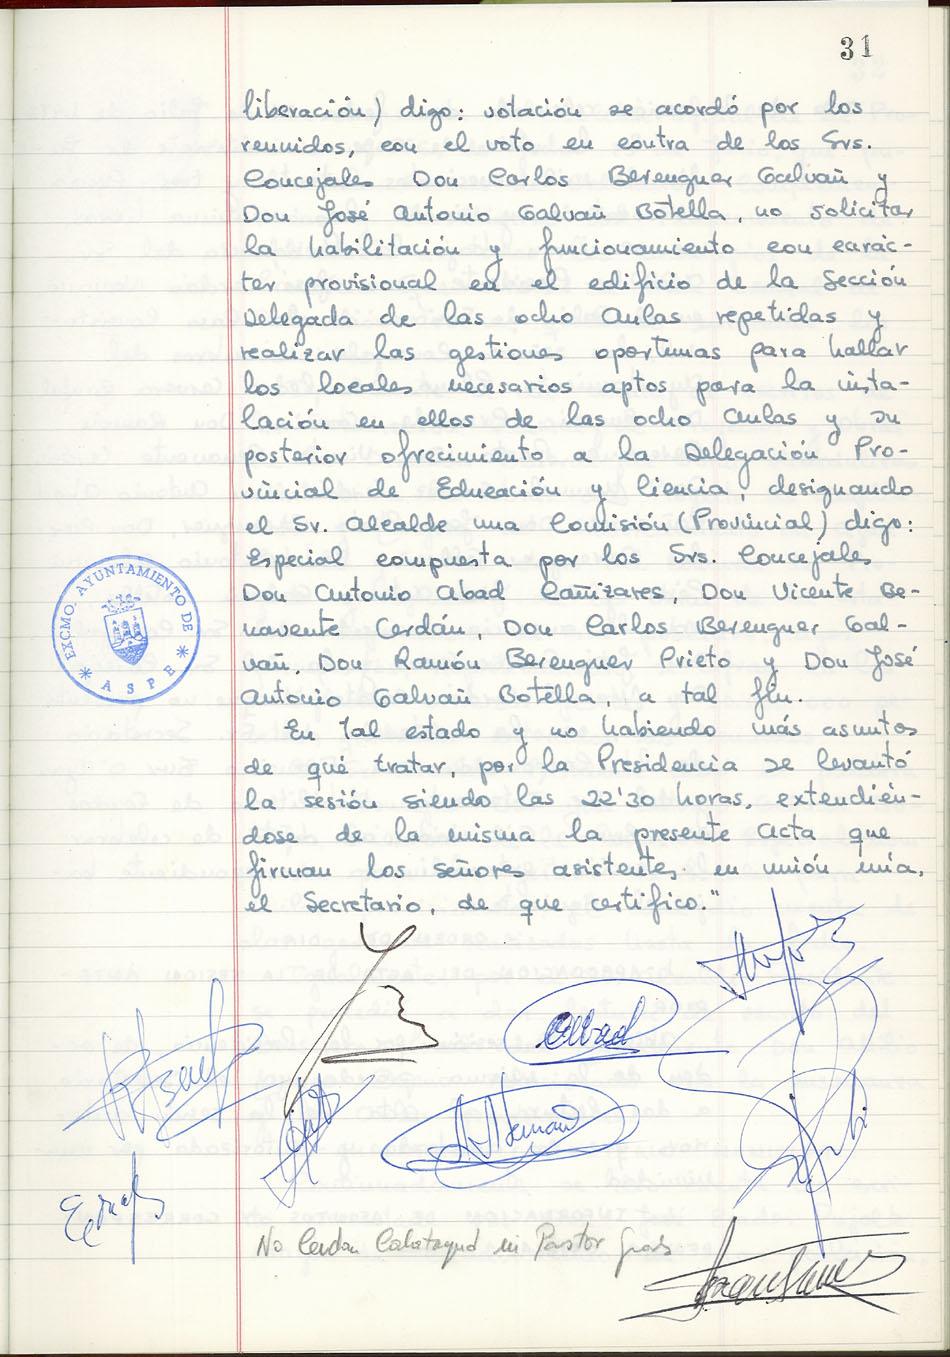 31
liberación) digo: votación se acordó por los
reunidos, con el voto en contra de los Srs.
Concejales Don Carlos Berenguer Galvañ y
Don José Antonio Galvañ Botella, no solicitar
la habilitación y funcionamiento con carác-
ter provisional en el edificio de la Sección
Delegada de las ocho Aulas repetidas y
realizar las gestiones oportunas para hallar
los locales necesarios aptos para la insta-
lación en ellos de las ocho Aulas y su
posterior ofrecimiento a la Delegación Pro-
vincial de Educación y Ciencia, designando
el Sr. Alcalde una Comisión (Provincial) digo:
Especial compuesta por los Srs. Concejales
Don Antonio Abad Cañizares, Don Vicente Be-
navente Cerdán, Don Carlos Berenguer Gal-
vañ, Don Ramón Berenguer Prieto y Don José
Antonio Galvañ Botella, a tal fin.
En tal estado y no habiendo más asuntos
de qué tratar, por la Presidencia se levantó
la sesión siendo las 22'30 horas, extendién-
dose de la misma la presente acta que
firman los señores asistentes en unión mía,
el Secretario, de que certifico."
EXCMO. AYUNTAMIENTO DE
* ASPE *
Abad
No Cerdán Calatayud ni Pastor Gras